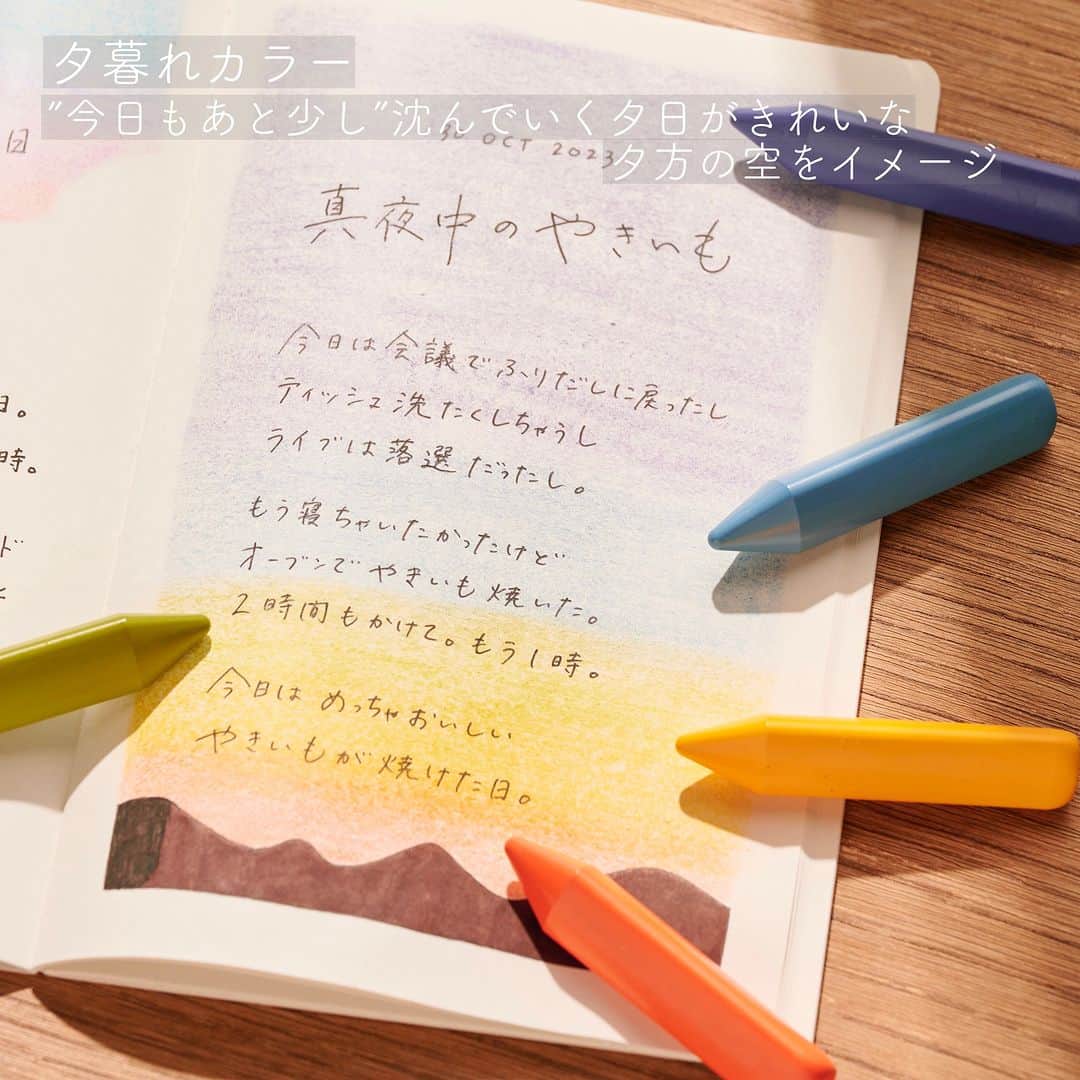 夕暮れカラー
"今日もあと少し"沈んでいく夕日がきれいな
夕方の空をイメージ
OCT 2023
真夜中のやきいも
今日は会議でふりだしに戻ったし
ティッシュ洗たくしちゃうし
ライブは落選だったし。
もう寝ちゃいたかったけど
オーブンでやきいも焼いた。
2時間もかけて。もう1時。
今日はめっちゃおいしい
やきいもが焼けた日。
日。
時。
ド